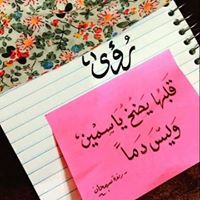 رُؤىٰ
قلبُها يضخُّ يَاسمين
وَليسَ دماً